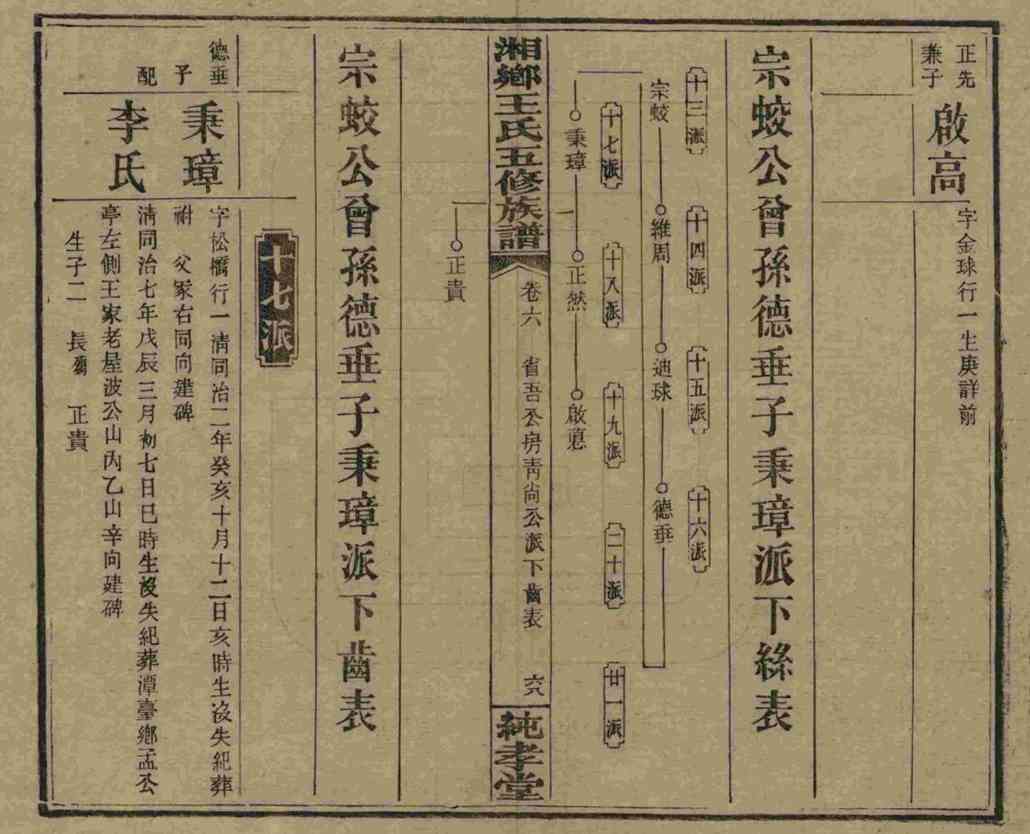 正先
兼子
啟高
字金球行一生庚詳前
宗蛟公曾孫德垂子秉璋派下絲表
十三派
十四派
十五派
十六派
宗蛟
維周
迪球
德垂
十七派
十八派
十九派
二十派
廿一派
秉璋
正然
啟蒠
正貴
湘鄉王氏五修族譜
卷六
省吾公房青尚公派下齒表
六八
純孝堂
宗蛟公曾孫德垂子秉璋派下齒表
十七派
德垂
子
秉璋
字松橋行一清同治二年癸亥十月十二日亥時生沒失紀葬
祔 父冢右同向建碑
配
李氏
清同治七年戊辰三月初七日巳時生沒失紀葬潭臺鄉孟公
亭左側王家老屋波公山內乙山辛向建碑
生子二 長殤 正貴